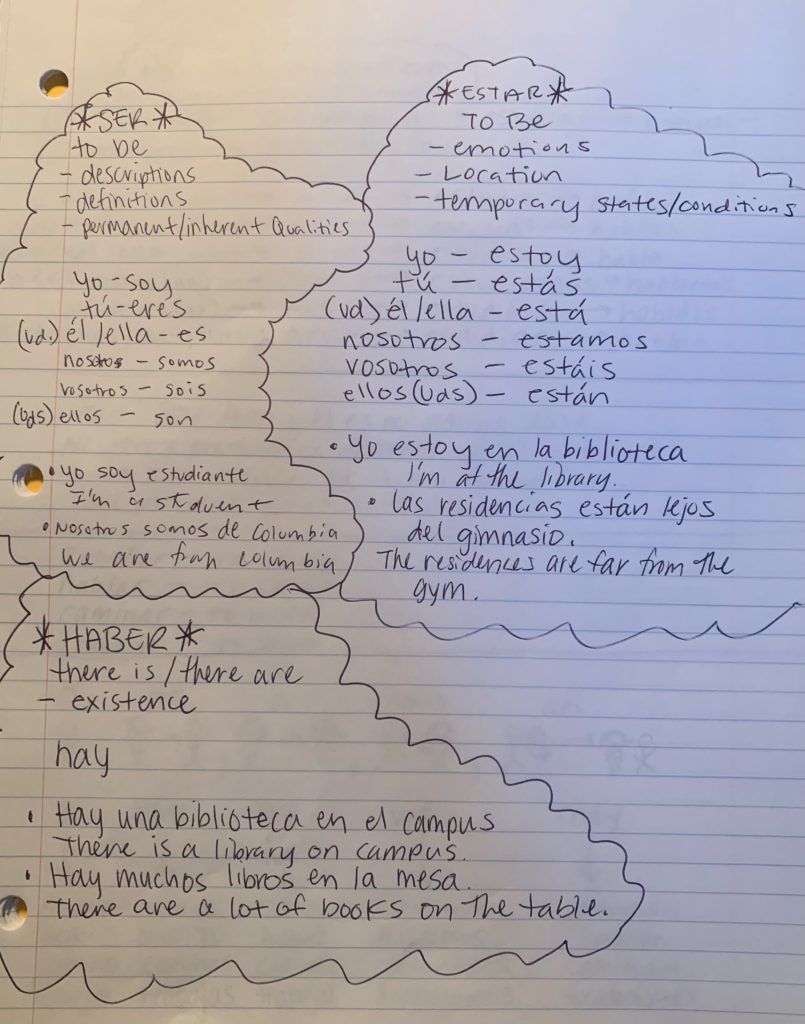 *SER*
to be
- descriptions
- definitions
- permanent/inherent Qualities
yo - soy
tú - eres
(ud.) él/ella - es
nosotros - somos
vosotros - sois
(Uds) ellos - son
• yo soy estudiante
I'm a student
• Nosotros somos de Columbia
We are from columbia
*ESTAR*
TO Be
- emotions
- Location
- temporary states/conditions
yo - estoy
tú - estás
(Ud) él/ella - está
nosotros - estamos
vosotros - estáis
ellos (Uds) - están
• Yo estoy en la biblioteca
I'm at the library.
• Las residencias están lejos
del gimnasio.
The residences are far from the
gym.
*HABER*
there is/there are
- existence
hay
• Hay una biblioteca en el campus
There is a library on campus.
• Hay muchos libros en la mesa.
There are a lot of books on the table.